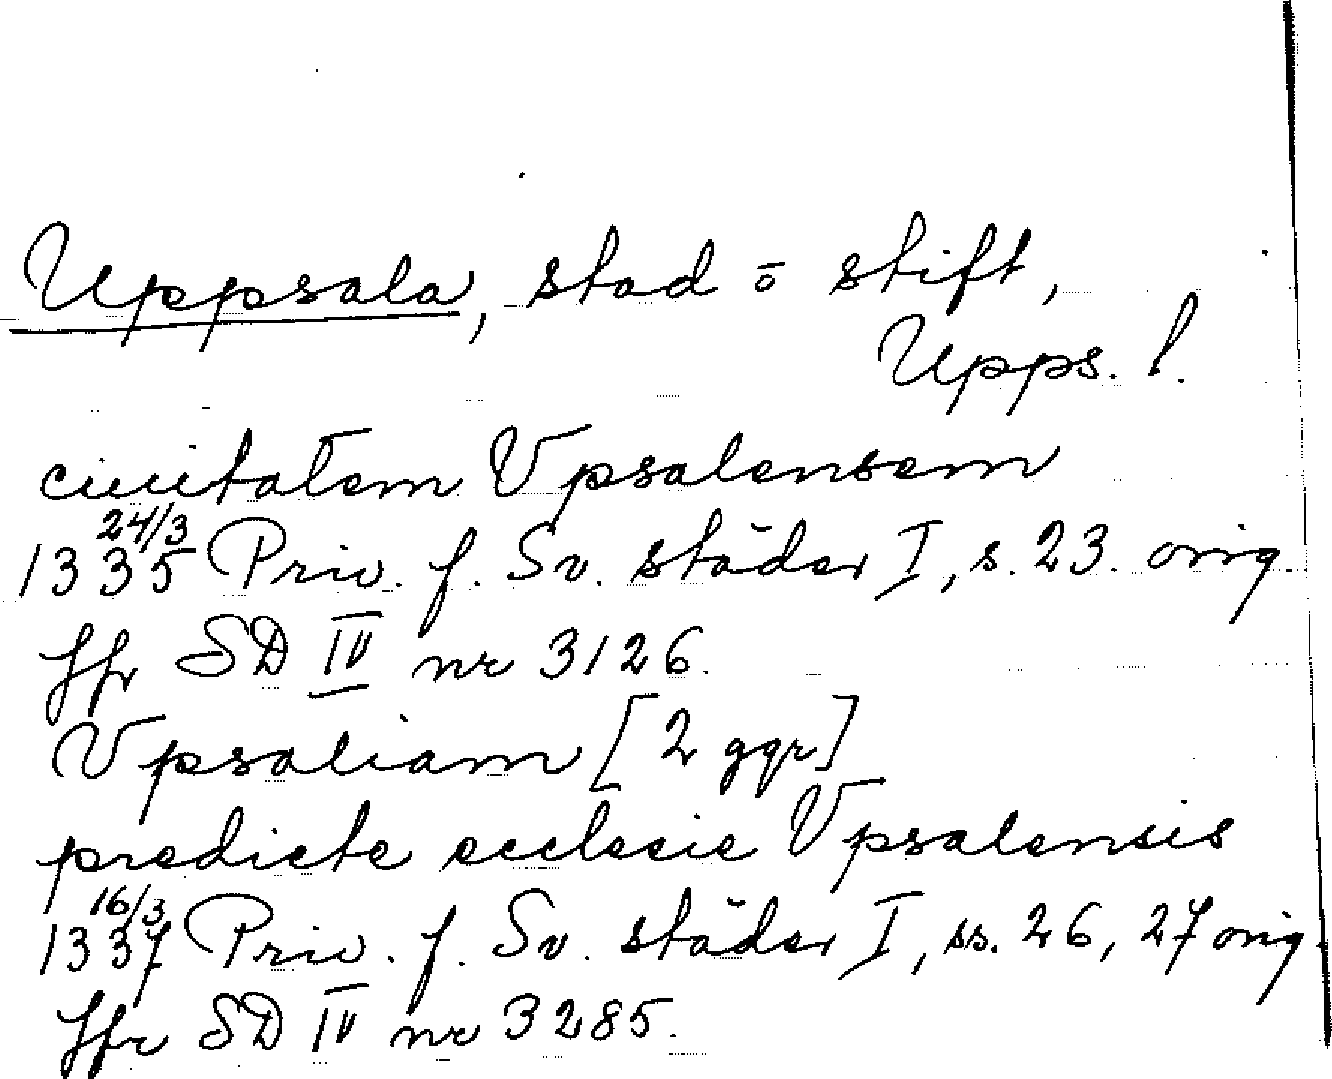 Uppsala, stad o stift,
Upps. l.
ciuitatem Vpsalensem
24/3
1335 Priv. f. Sv. städer I, s. 23. orig.
Jfr SD IV nr 3126.
Vpsaliam [2 ggr]
predicte ecclesie Vpsalensis
16/3
1337 Priv. f. Sv. städer I, ss. 26, 27 orig.
Jfr SD IV nr 3285.